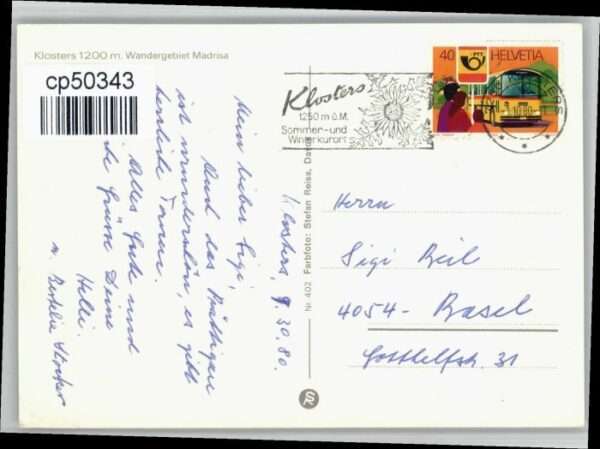 Klosters 1200 m. Wandergebiet Madrisa
cp50343
40 HELVETIA
PTT
Klosters
1250 m ü. M.
Sommer- und
Winterkurort
KLOSTERS
Klosters, 9.30.80.
Mein lieber Sigi,
Auch das Prättigau
ist wunderschön, es gibt
herrliche Touren.
Alles Gute und
Grüsse Deine
Helli.
Nr. 402 Farbfoto: Stefan Reiss, Davos
Herrn
Sigi Beil
4054- Basel
Gotthelfstr. 31